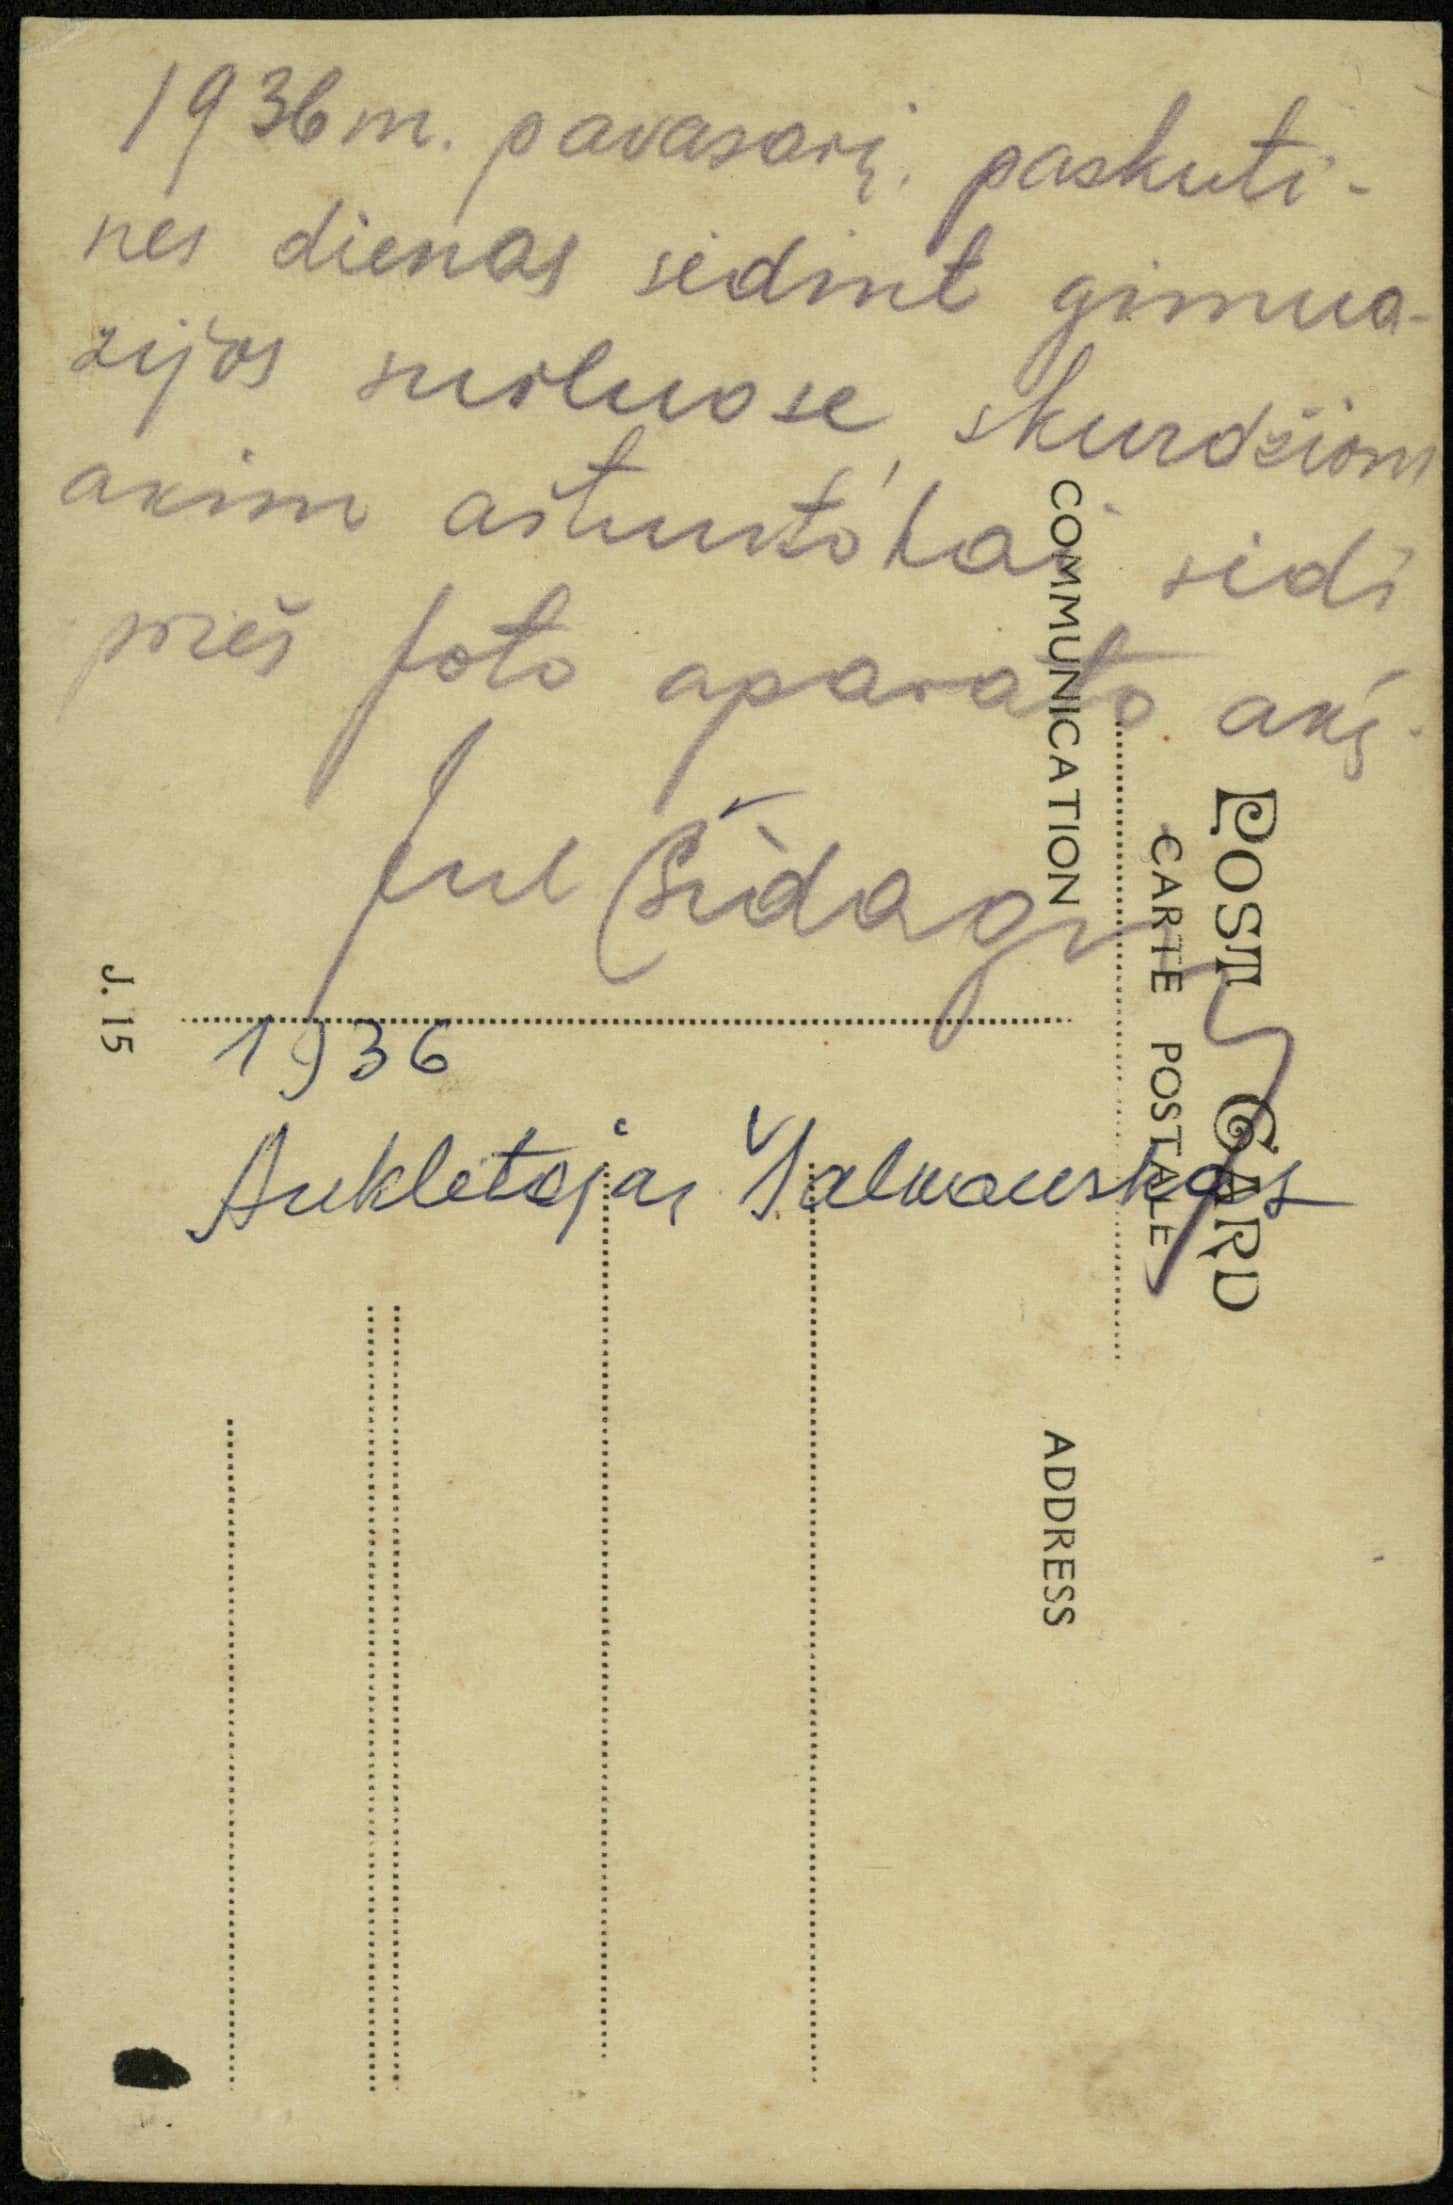 1936 m. pavasarį, paskuti-
nes dienas sėdint gimna-
zijos suoluose, skurdžiom
akim aštuntokai sėdi
prieš foto aparato akį.
Jul Šidag
1936
Auklėtojas Šalnauskas
POST CARD
CARTE POSTALE
COMMUNICATION
ADDRESS
J. 15